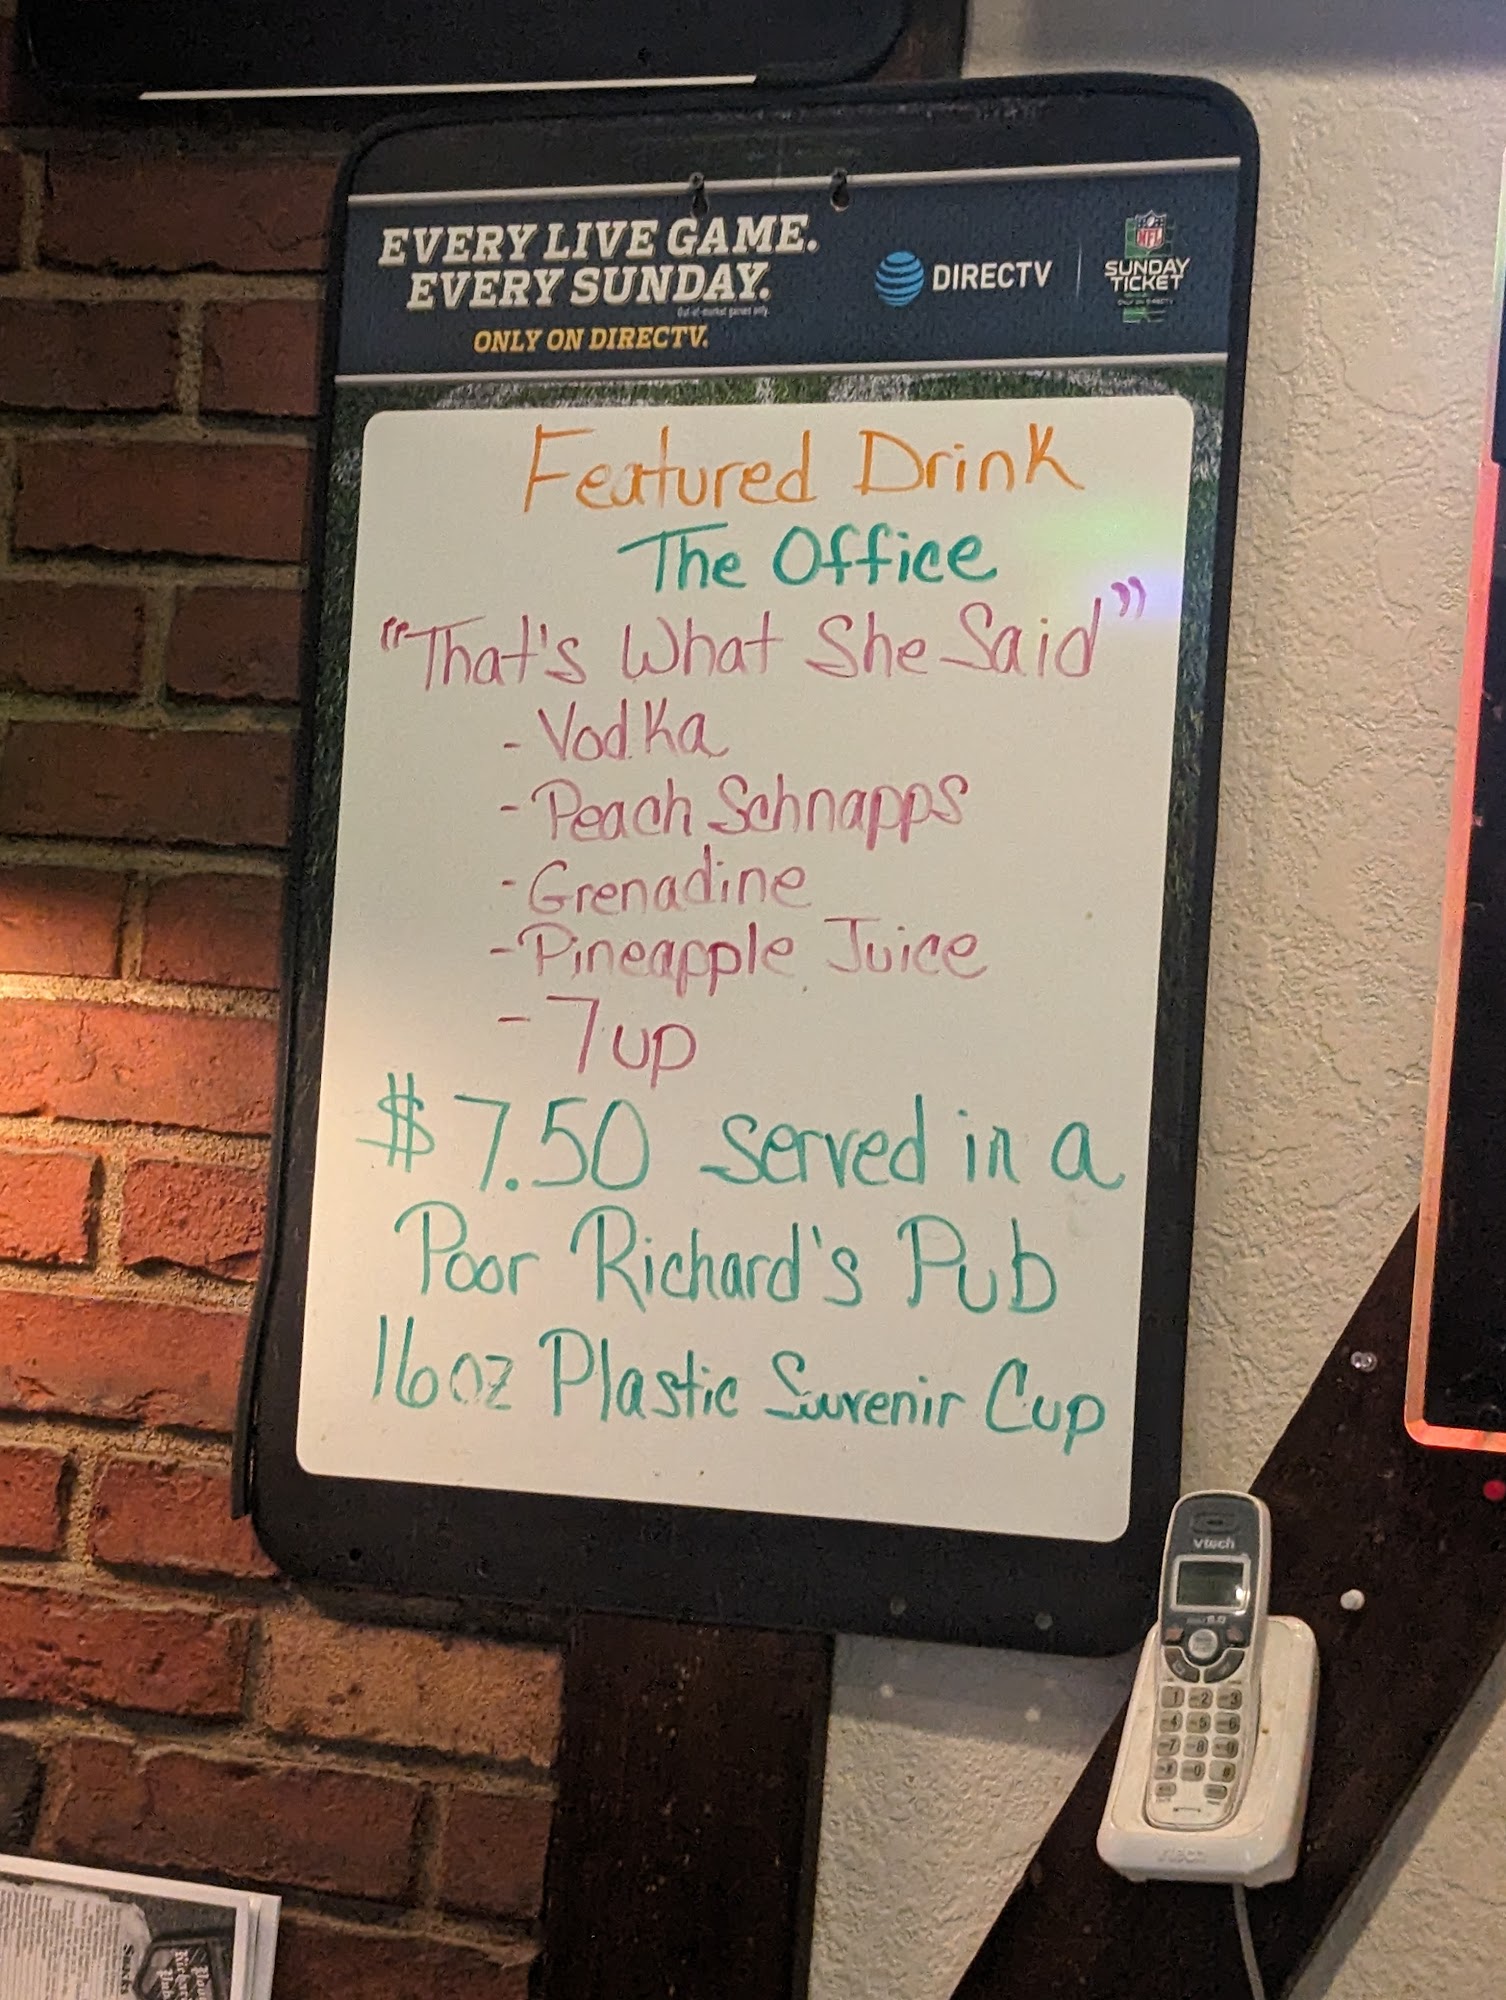 EVERY LIVE GAME.
EVERY SUNDAY.
Out-of-market games only.
ONLY ON DIRECTV.
DIRECTV
NFL
SUNDAY
TICKET
ONLY ON DIRECTV
Featured Drink
The Office
"That's What She Said"
- Vodka
- Peach Schnapps
- Grenadine
- Pineapple Juice
- 7up
$7.50 served in a
Poor Richard's Pub
16oz Plastic Suvenir Cup
vtech
1 2 3
4 5 6
7 8 9
* 0 #
vtech
Poor
Richard's
Pub